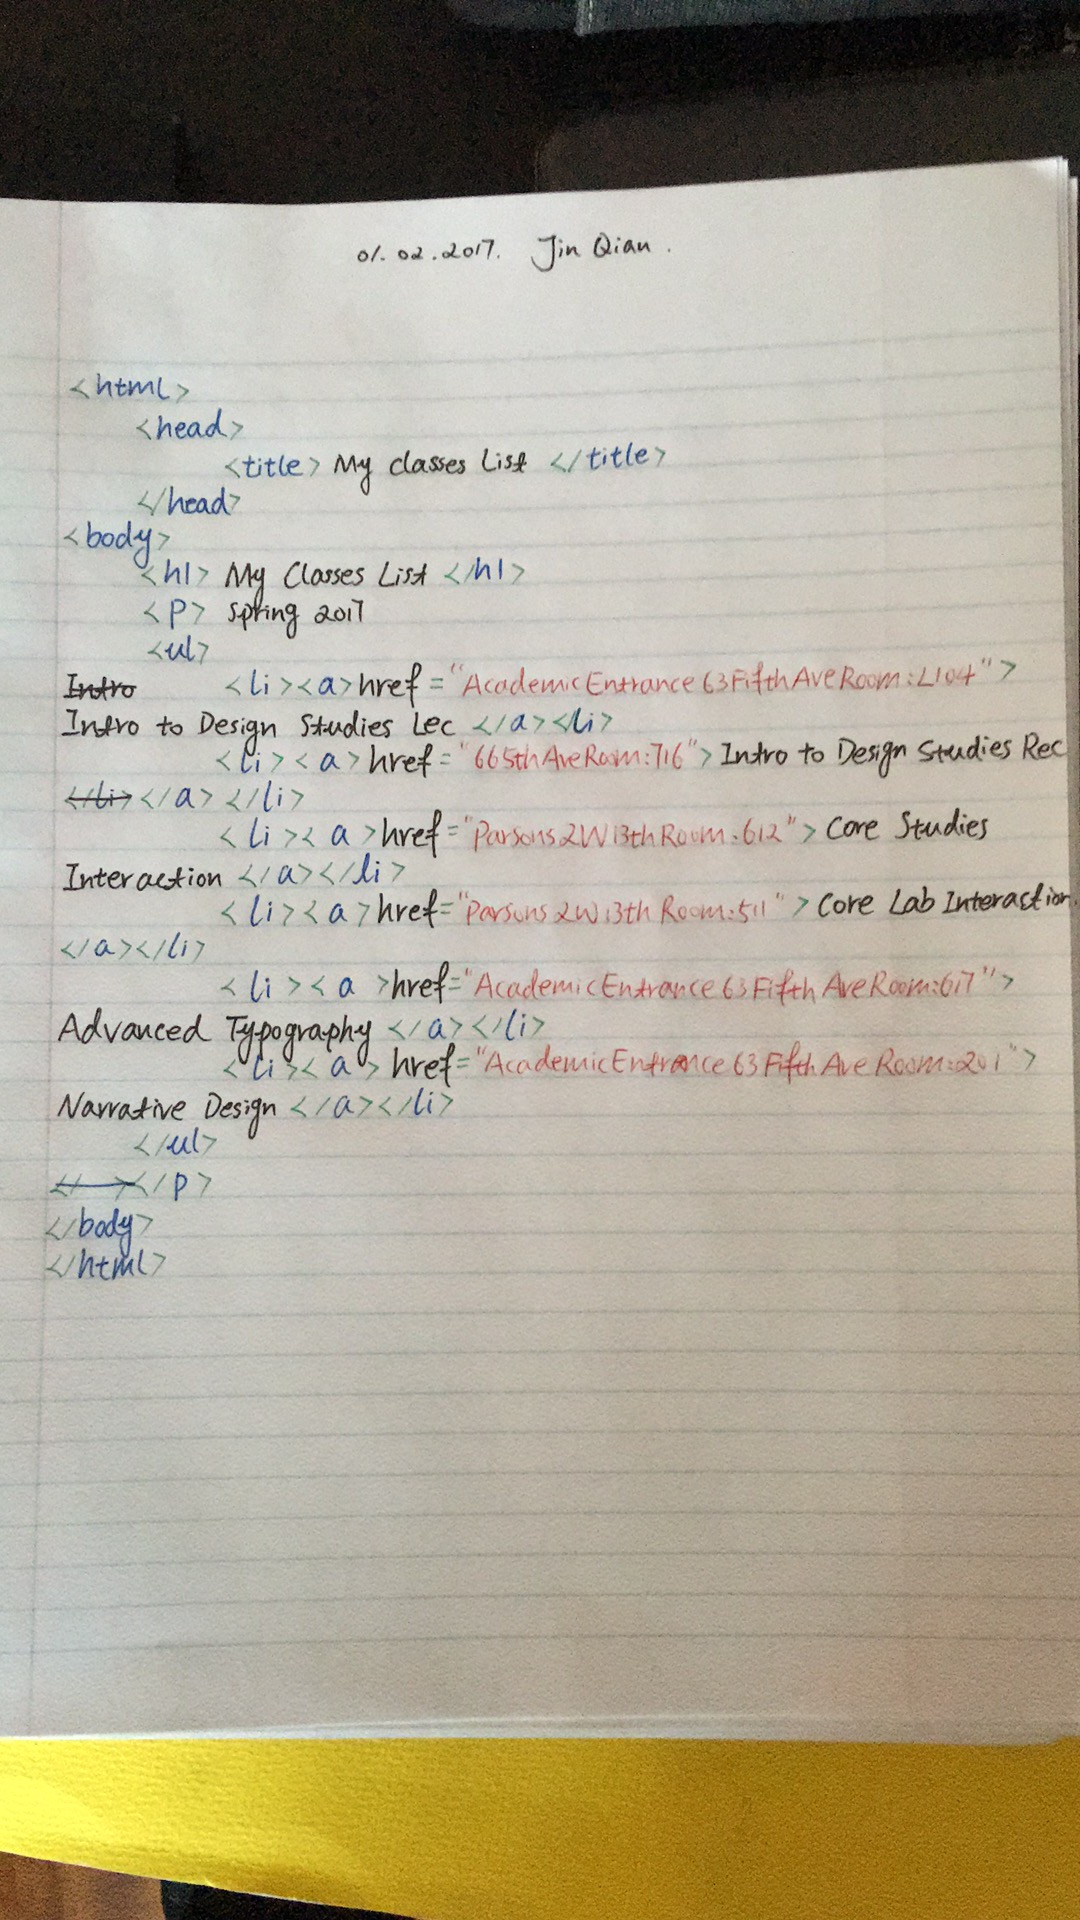 01.02.2017. Jin Qian.
<html>
<head>
<title> My classes List </title>
</head>
<body>
<h1> My Classes List </h1>
<p> Spring 2017
<ul>
Intro <li><a>href="AcademicEntrance63FifthAveRoom:L104">
Intro to Design Studies Lec </a></li>
<li><a>href="665thAveRoom:716"> Intro to Design Studies Rec
</li></a></li>
<li><a>href="Parsons2W13thRoom:612"> Core Studies
Interaction </a></li>
<li><a>href="Parsons2W13thRoom:511"> Core Lab Interaction.
</a></li>
<li><a>href="AcademicEntrance63FifthAveRoom:617">
Advanced Typography </a></li>
<li><a> href="AcademicEntrance63FifthAveRoom:201">
Narrative Design </a></li>
</ul>
</p>
</body>
</html>